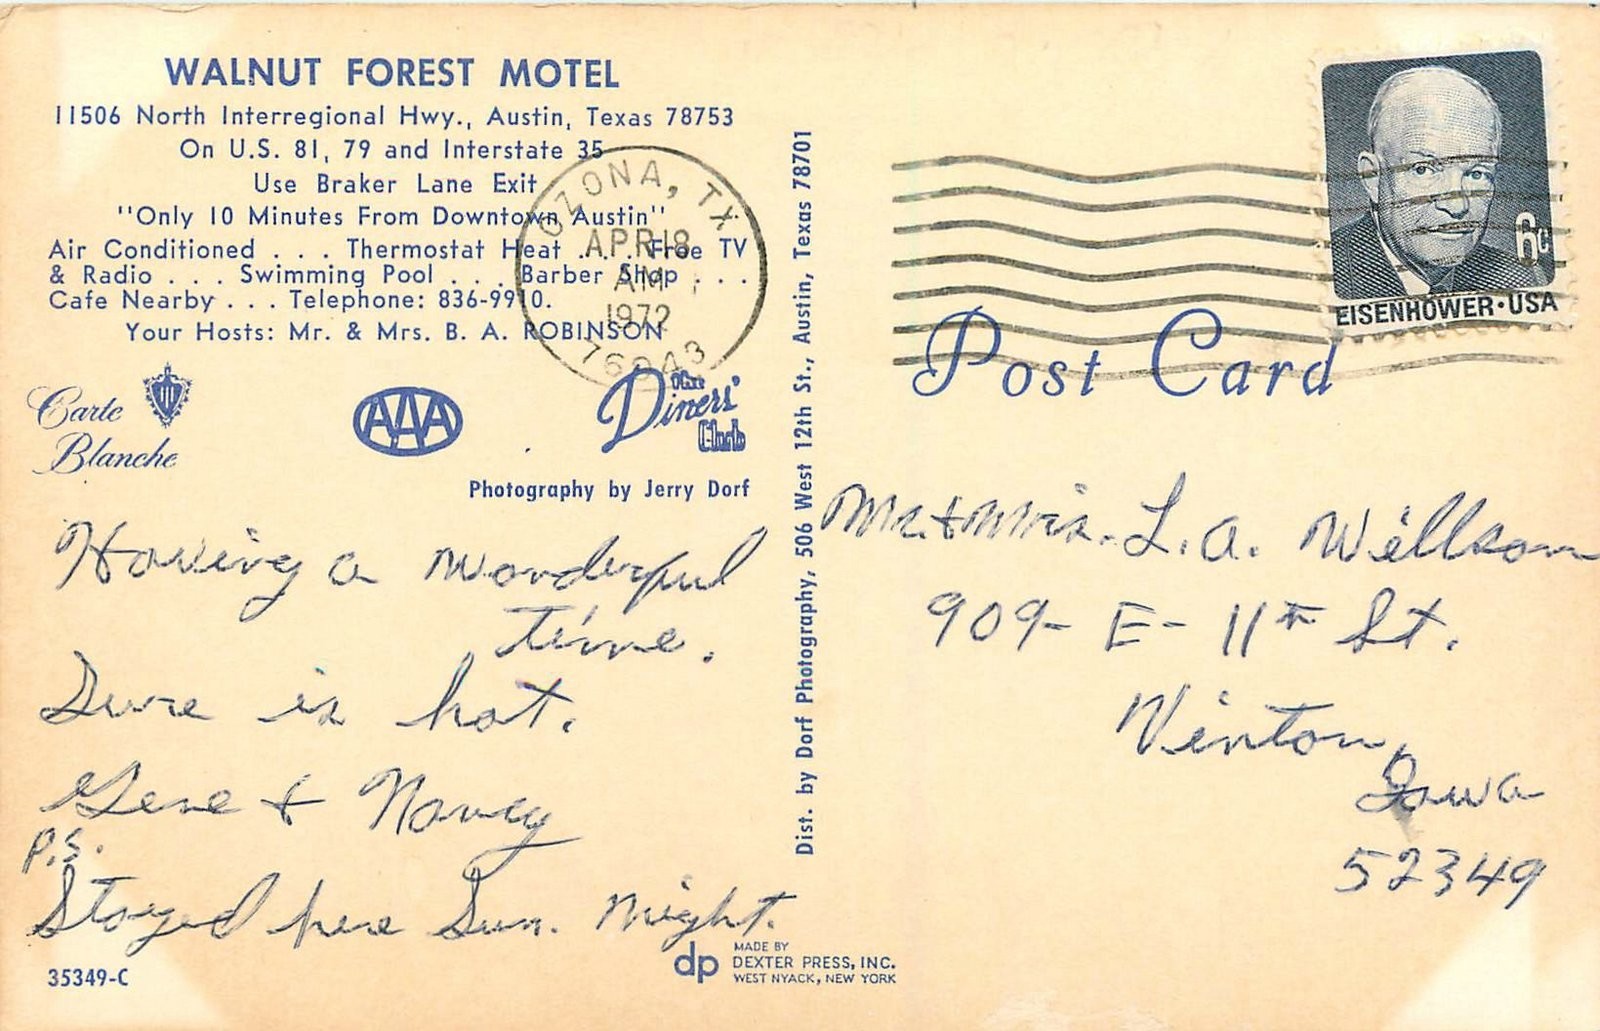 WALNUT FOREST MOTEL
11506 North Interregional Hwy., Austin, Texas 78753
On U.S. 81, 79 and Interstate 35
Use Braker Lane Exit
"Only 10 Minutes From Downtown Austin"
Air Conditioned . . . Thermostat Heat . . . Free TV
& Radio . . . Swimming Pool . . . Barber Shop . . .
Cafe Nearby . . . Telephone: 836-9910.
Your Hosts: Mr. & Mrs. B. A. ROBINSON
Carte
Blanche
AAA
The
Diners'
Club
Photography by Jerry Dorf
Having a wonderful
time.
Sure is hot.
Gene & Nancy
P.S.
Stayed here Sun. Night.
35349-C
dp
MADE BY
DEXTER PRESS, INC.
WEST NYACK, NEW YORK
Dist. by Dorf Photography, 506 West 12th St., Austin, Texas 78701
OZONA, TX
APR 18
AM
1972
76943
6c
EISENHOWER·USA
Post Card
Mr. & Mrs. L. A. Willson
909- E- 11th St.
Vinton,
Iowa
52349